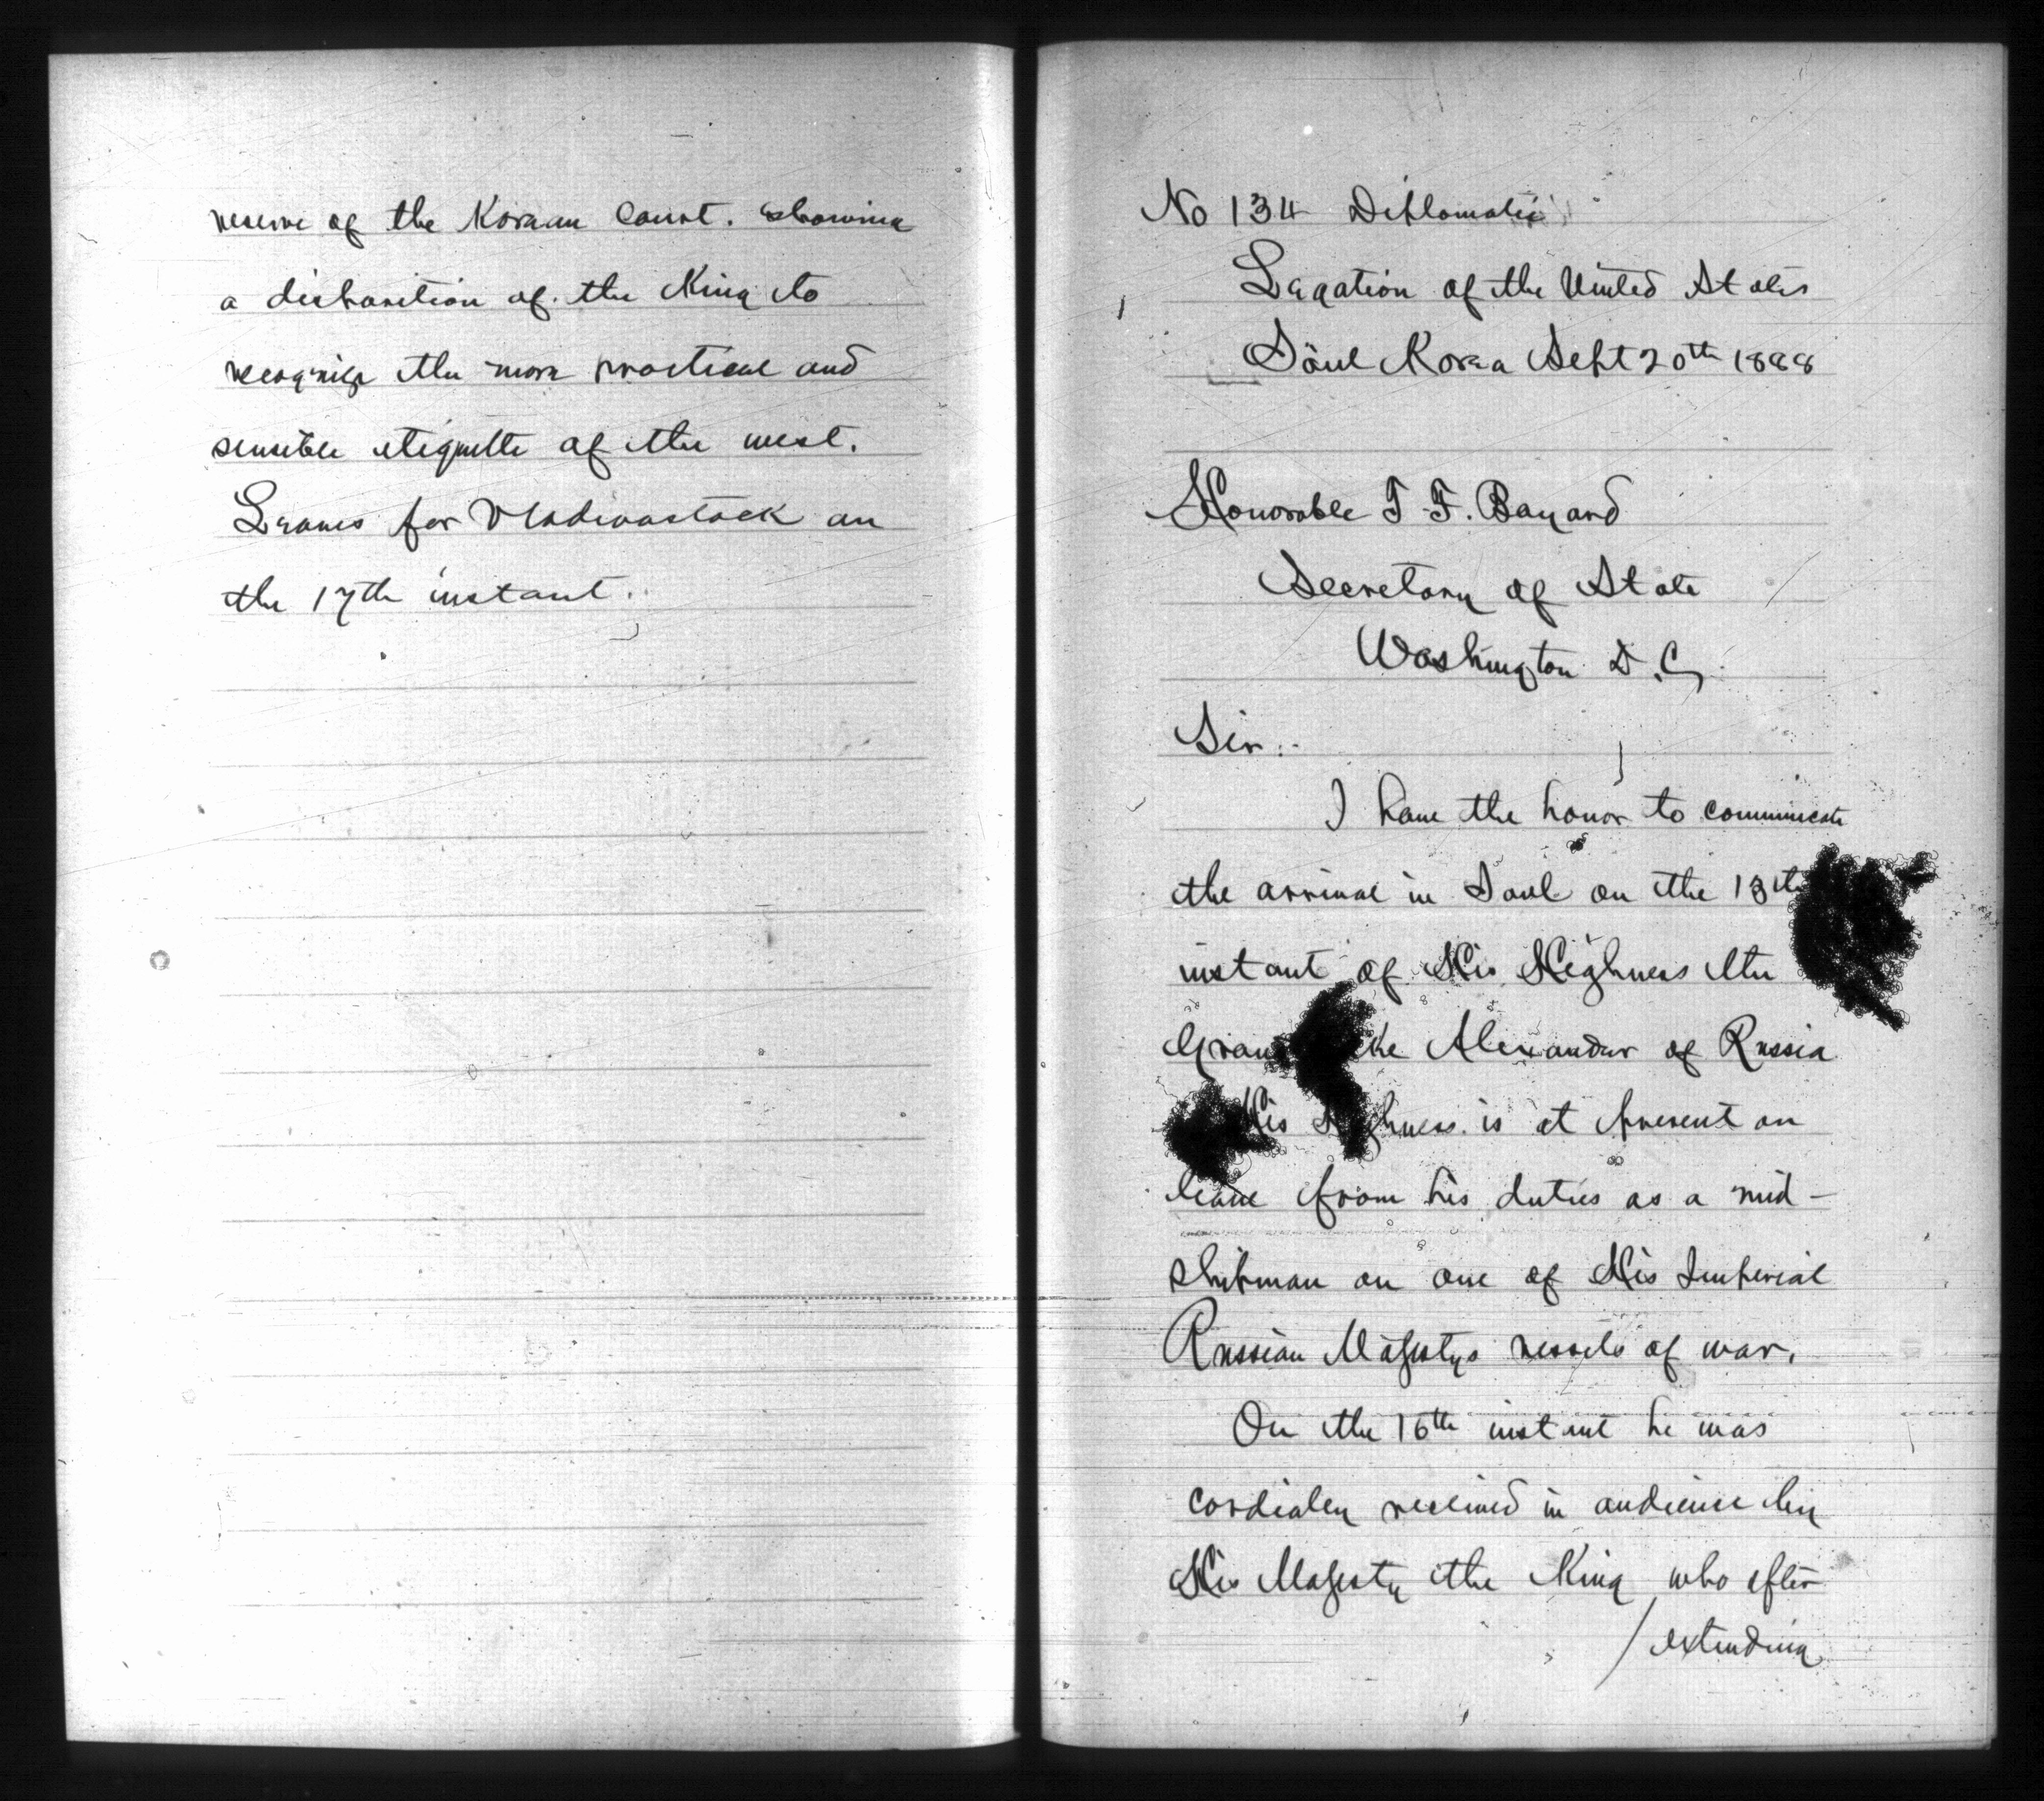 reserve of the Korean Court. showing
a disposition of the King to
recognize the more practical and
sensible etiquette of the west.
Leaves for Vladivostock on
the 17th instant.
No 134 Diplomatic
Legation of the United States
Söul Korea Sept 20th 1888
Honorable T F. Bayard
Secretary of State
Washington D.C
Sir:
I have the honor to communicate
the arrival in Soul on the 13th
instant of His Highness the
Alexander of Russia
His Highness is at present on
leave from his duties as a mid-
shipman on one of His Imperial
Russian Majestys vessels of war.
On the 16th instant he was
cordialey received in audience by
His Majesty the King who after
/ extending